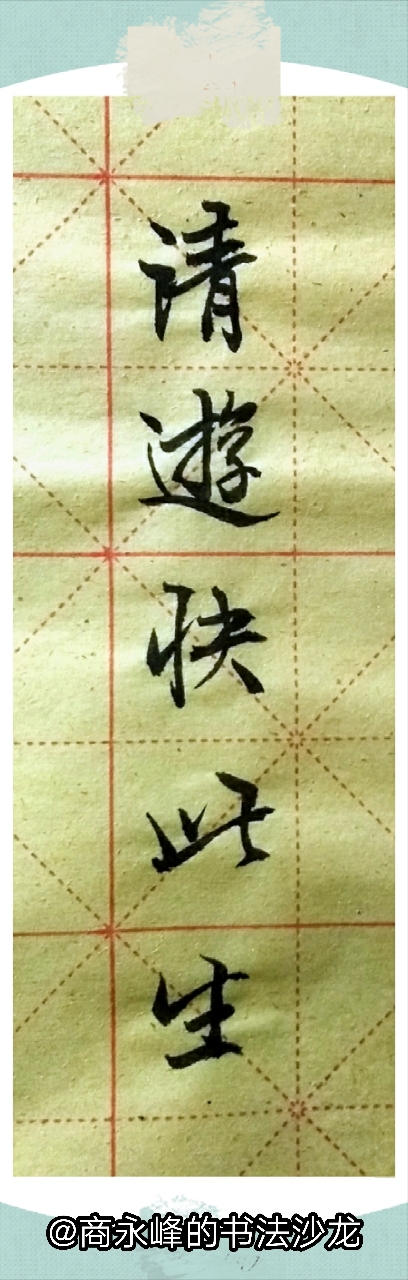 请遊快此生
@商永峰的书法沙龙